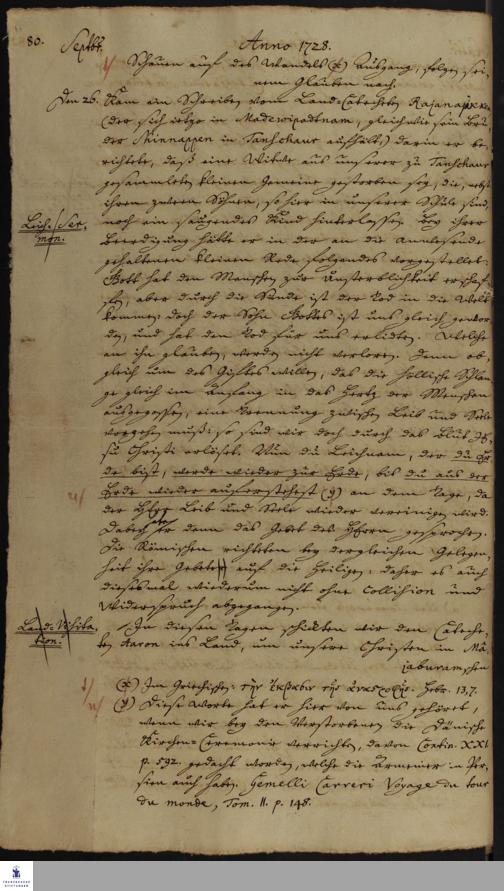 80. Septbr. Anno 1728.
Schauen auf des Wandels (*) Ausgang, folgen sei-
nem Glauben nach.
Den 26. Kam ein Schreiben vom Land-Catecheten Rajanaiken
(der sich itzo in Madewipadtnam, gleichwie sein Bru-
der Schinnappen in Tanschaur aufhält,) darin er be-
richtete, daß eine Witwe aus unserer zu Tanschaur
gesammleten kleinen Gemeine gestorben sey, die, nebst
ihren zween Söhnen, so hier in unserer Schule sind,
Leich-Ser-
mon.
noch ein saugendes Kind hinterlassen. Bey ihrer
Beerdigung hätte er in der an die Anwesende
gehaltenen kleinen Rede folgendes vorgestellet:
Gott hat den Menschen zur Unsterblichkeit erschaf-
fen, aber durch die Sünde ist der Tod in die Welt
kommen: doch der Sohn Gottes ist uns gleich gewor-
den, und hat den Tod für uns erlidten. Welche
an ihn glauben, werden nicht verloren. Denn ob-
gleich um des Giftes willen, das die höllische Schlan-
ge gleich im Anfang in das Hertz der Menschen
ausgegossen, eine Trennung zwischen Leib und Seele
vorgehen muß; so sind wir doch durch das Blut Je-
su Christi erlöset. Nun du Leichnam, der du Er-
de bist, werde wieder zur Erde, bis du aus der
Erde wieder auferstehest (y) an dem Tage, da
der HErr Leib und Seele wieder vereinigen wird.
Dabey er denn das Gebet des HErrn gesprochen.
Die Römischen richteten bey dergleichen Gelegen-
heit ihre Gebeter auf die Heiligen: daher es auch
diesesmal wiederum nicht ohne Collision und
Widerspruch abgegangen.
Land-Visita-
tion.
In diesen Tagen schickten wir den Cateche-
ten Aaron ins Land, um unsere Christen in Ma-
jaburamschen
(*) Im Griechischen: τὴν ἔκβασιν τῆς ἀναστροφῆς. Hebr. 13,7.
(y) Diese Worte hat er hier von uns gehöret,
wenn wir bey den Verstorbenen die Dänische
Kirchen-Ceremonie verrichten, davon Contin. XXI.
p. 592. gedacht worden, welche die Armenier in Per-
sien auch haben. Gemelli Carreri Voyage du tour
du monde, Tom. II. p. 148.
FRANCKESCHE
STIFTUNGEN